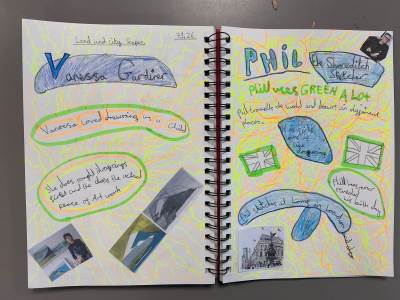 Land and city scapes
Vanessa Gardiner
Vanessa Loved drawing as a child
She does rough drawings
first and she does the actual
peace of Art work
PHIL
the Shoreditch
Sketcher
Phill uses GREEN A LOT
Phil travells the world and draws in different
places.
his
drawing
Phill has never
revealed
his birth day
Phil sketches at home in London and other